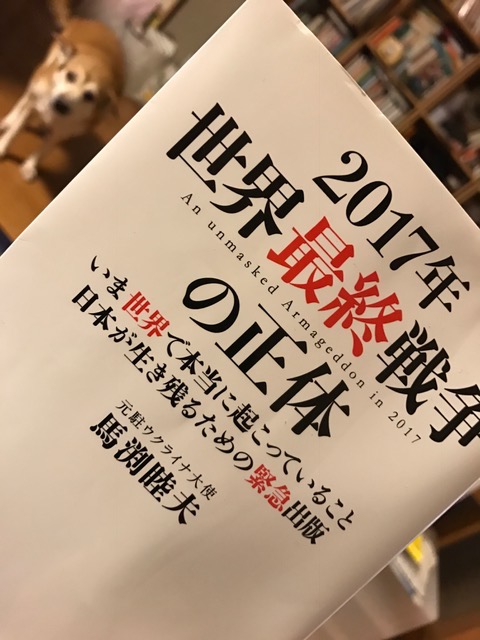 2017年
世界最終戦争
An unmasked Armageddon in 2017
の正体
いま世界で本当に起こっていること
日本が生き残るための緊急出版
元駐ウクライナ大使
馬渕睦夫